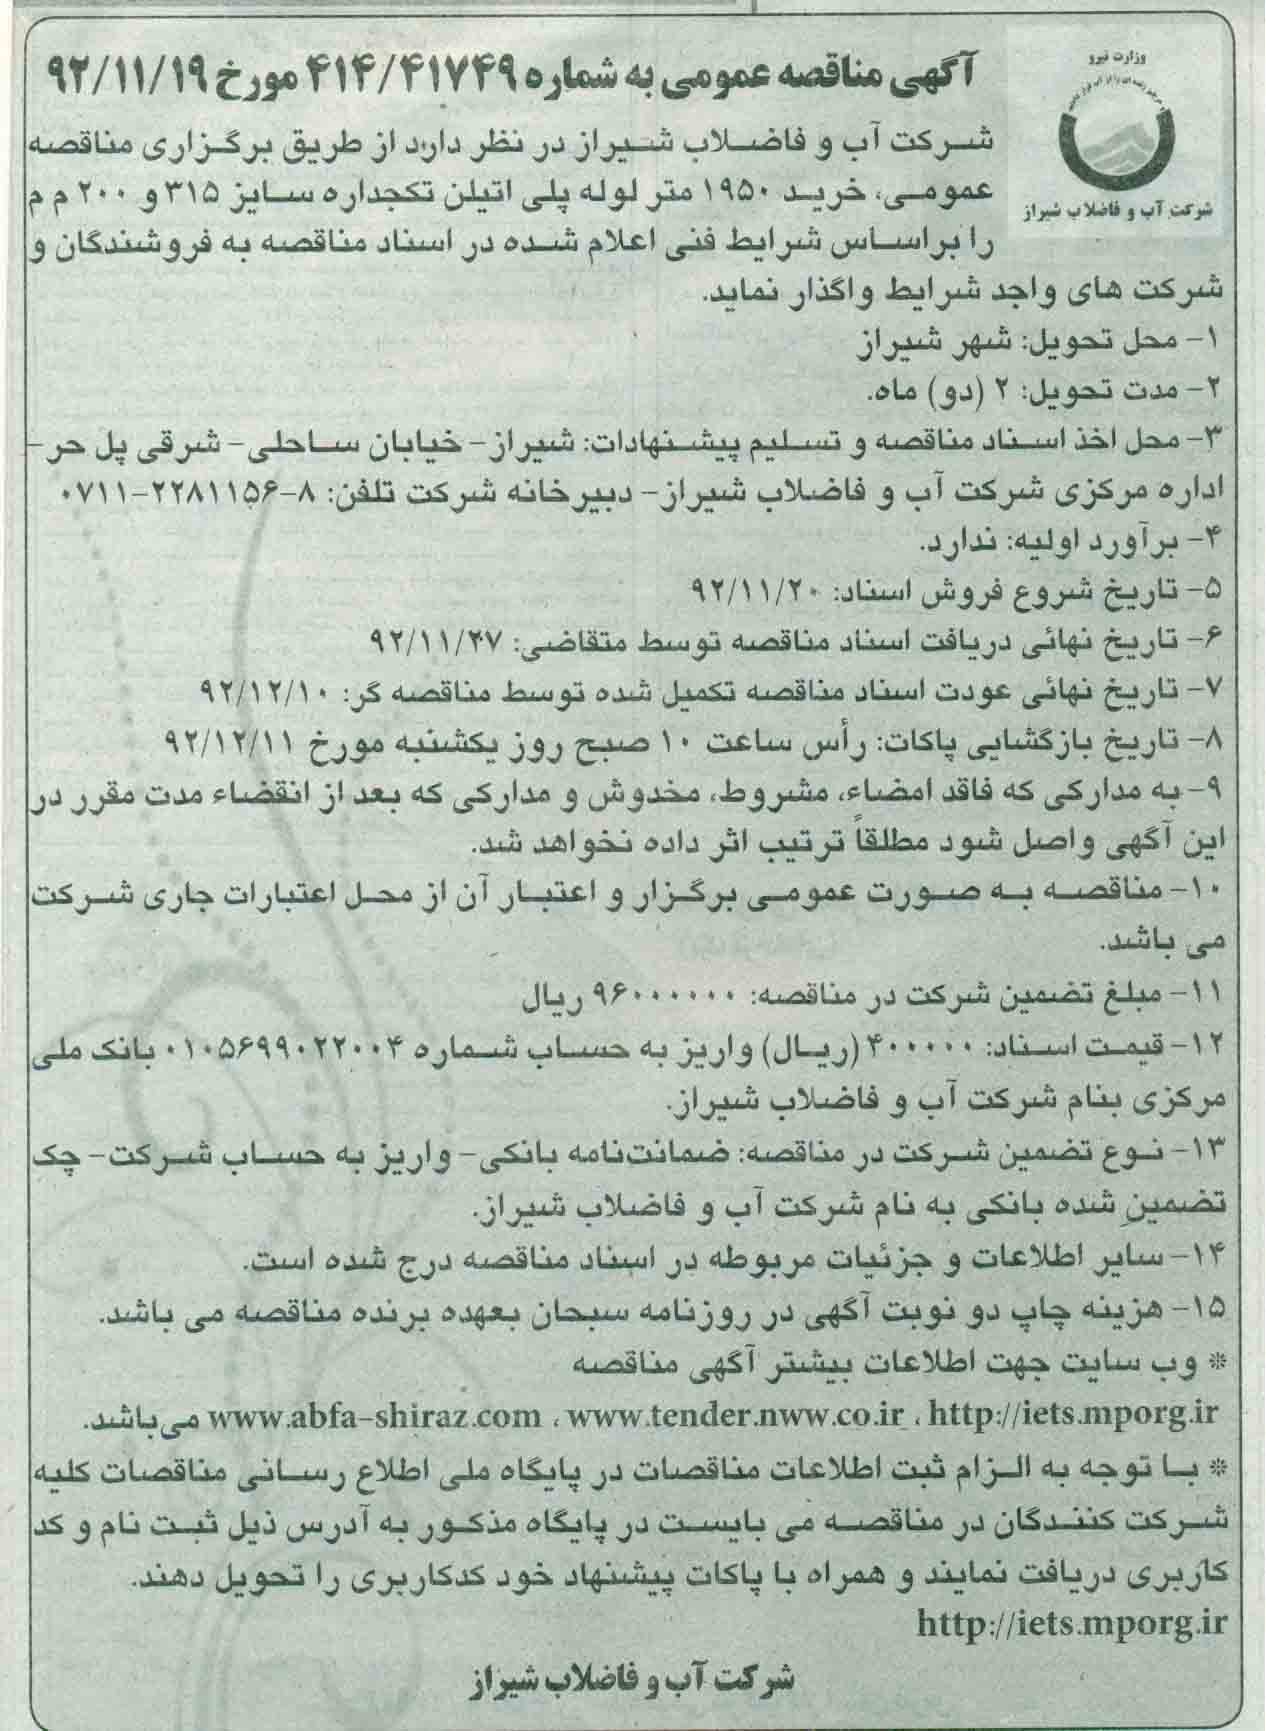 وزارت نیرو
شرکت آب و فاضلاب شیراز
آگهی مناقصه عمومی به شماره ۴۱۴/۴۱۷۴۹ مورخ ۹۲/۱۱/۱۹
شرکت آب و فاضلاب شیراز در نظر دارد از طریق برگزاری مناقصه
عمومی، خرید ۱۹۵۰ متر لوله پلی اتیلن تکجداره سایز ۳۱۵ و ۲۰۰ م م
را براساس شرایط فنی اعلام شده در اسناد مناقصه به فروشندگان و
شرکت های واجد شرایط واگذار نماید.
۱- محل تحویل: شهر شیراز
۲- مدت تحویل: ۲ (دو) ماه.
۳- محل اخذ اسناد مناقصه و تسلیم پیشنهادات: شیراز- خیابان ساحلی- شرقی پل حر-
اداره مرکزی شرکت آب و فاضلاب شیراز- دبیرخانه شرکت تلفن: ۸-۲۲۸۱۱۵۶-۰۷۱۱
۴- برآورد اولیه: ندارد.
۵- تاریخ شروع فروش اسناد: ۹۲/۱۱/۲۰
۶- تاریخ نهائی دریافت اسناد مناقصه توسط متقاضی: ۹۲/۱۱/۲۷
۷- تاریخ نهائی عودت اسناد مناقصه تکمیل شده توسط مناقصه گر: ۹۲/۱۲/۱۰
۸- تاریخ بازگشایی پاکات: رأس ساعت ۱۰ صبح روز یکشنبه مورخ ۹۲/۱۲/۱۱
۹- به مدارکی که فاقد امضاء، مشروط، مخدوش و مدارکی که بعد از انقضاء مدت مقرر در
این آگهی واصل شود مطلقاً ترتیب اثر داده نخواهد شد.
۱۰- مناقصه به صورت عمومی برگزار و اعتبار آن از محل اعتبارات جاری شرکت
می باشد.
۱۱- مبلغ تضمین شرکت در مناقصه: ۹۶۰۰۰۰۰۰ ریال
۱۲- قیمت اسناد: ۴۰۰۰۰۰ (ریال) واریز به حساب شماره ۰۱۰۵۶۹۹۰۲۲۰۰۴ بانک ملی
مرکزی بنام شرکت آب و فاضلاب شیراز.
۱۳- نوع تضمین شرکت در مناقصه: ضمانت‌نامه بانکی- واریز به حساب شرکت- چک
تضمین شده بانکی به نام شرکت آب و فاضلاب شیراز.
۱۴- سایر اطلاعات و جزئیات مربوطه در اسناد مناقصه درج شده است.
۱۵- هزینه چاپ دو نوبت آگهی در روزنامه سبحان بعهده برنده مناقصه می باشد.
* وب سایت جهت اطلاعات بیشتر آگهی مناقصه
http://iets.mporg.ir ، www.tender.nww.co.ir ، www.abfa-shiraz.com می‌باشد.
* با توجه به الزام ثبت اطلاعات مناقصات در پایگاه ملی اطلاع رسانی مناقصات کلیه
شرکت کنندگان در مناقصه می بایست در پایگاه مذکور به آدرس ذیل ثبت نام و کد
کاربری دریافت نمایند و همراه با پاکات پیشنهاد خود کدکاربری را تحویل دهند.
http://iets.mporg.ir
شرکت آب و فاضلاب شیراز